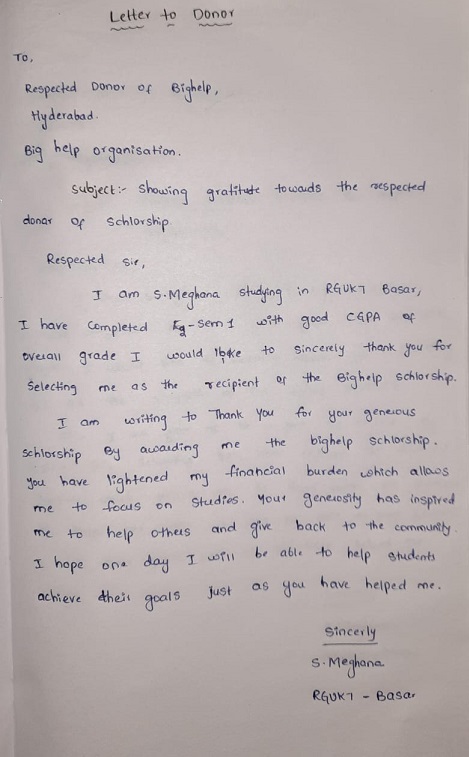 Letter to Donor
To,
Respected Donor of Bighelp,
Hyderabad.
Big help organisation.
Subject:- Showing gratitude towads the respected
donar of Schlorship
Respected Sir,
I am S.Meghana studying in RGUKT Basar,
I have completed sem 1 with good CGPA of
overall grade I would like to sincerely thank you for
selecting me as the recipient of the Bighelp schlorship.
I am writing to Thank you for your generous
schlorship By awarding me the bighelp schlorship.
you have lightened my financial burden which allows
me to focus on studies. Your generosity has inspired
me to help others and give back to the community.
I hope one day I will be able to help students
achieve their goals just as you have helped me.
Sincerly
S.Meghana
RGUKT - Basar